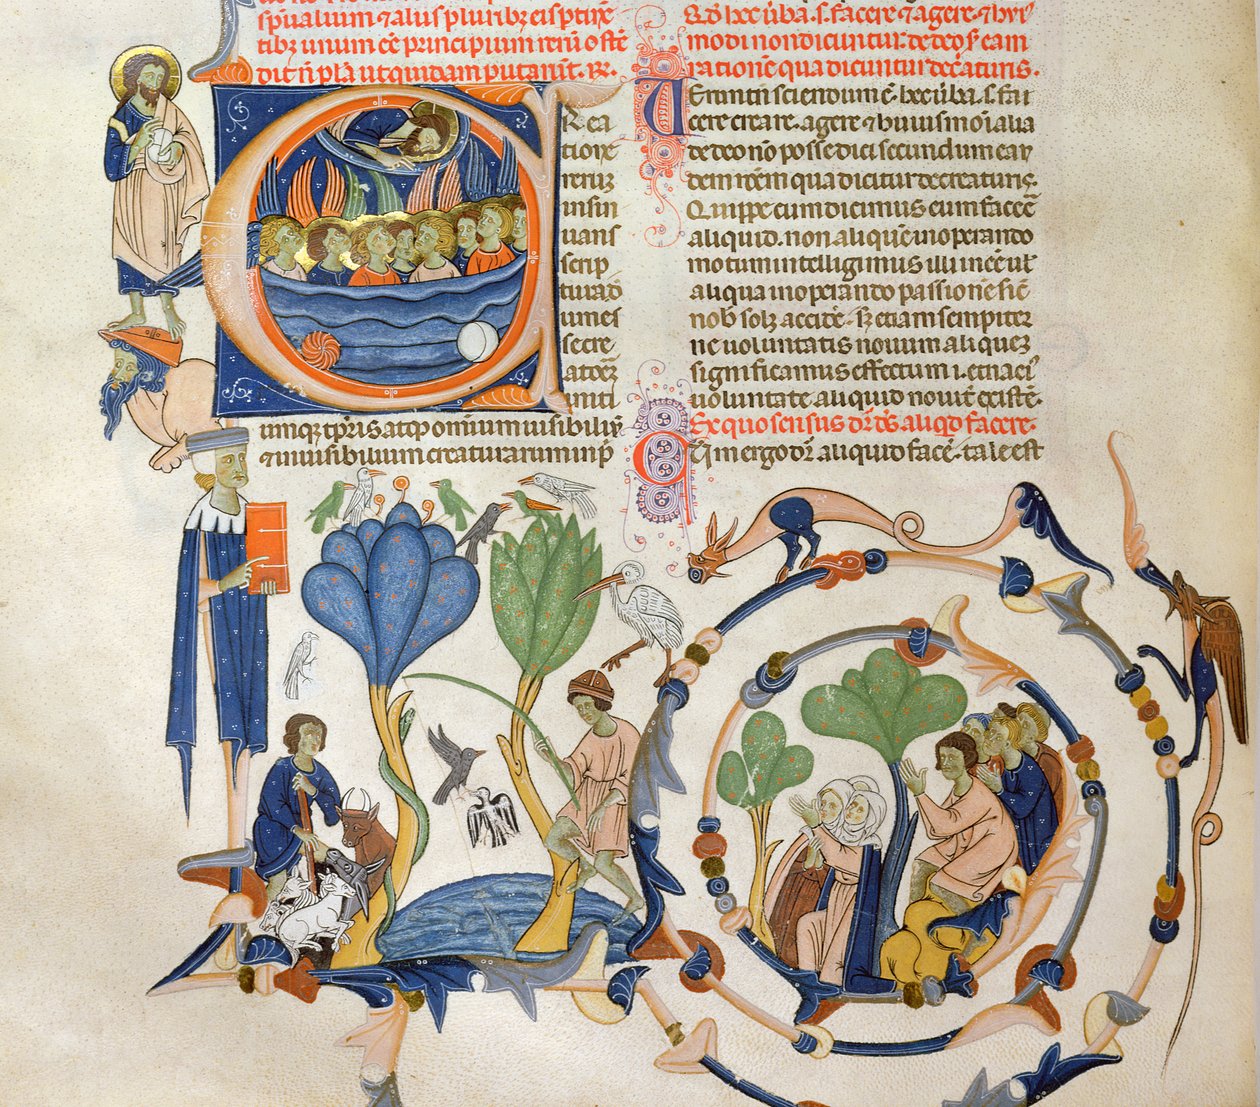 spualium ⁊ alus pluribꝫ ei sptire
tibꝫ unum eē principium rerū oste
dit ñ pla ut quidam putant. ꝶ.
Rea
tionē
rerū
insin
uans
scrip
tura
unies
secre
atorē
initi
umqꝫ tpris atqꝫ omnium uisibiliū
⁊ inuisibilium creaturarum in p
⁊ hec uba. s. facere ⁊ agere. ⁊ hui
modi non dicuntur. de deo s eam
rationē qua dicuntur de creaturis.
Uerum sciendum ē. hec uba. s. fa
cere creare. agere ⁊ huiusmoi alia
de deo nō posse dici secundum ea
dem rōem qua dicitur de creaturis.
Quippe cum dicimus eum facere
aliquid. non aliquē in operando
motum intelligimus illi inēē ul
aliqua in operando passionē sic
nob solꝫ accidē. sꝫ etiam sempiter
ne uoluntatis nouum aliquez
significamus effectum i. eterna ei
uoluntate aliquid nouit existē.
Ex quo sensus dr ds aliqd facere.
Cum ergo dr aliquid facē. tale est